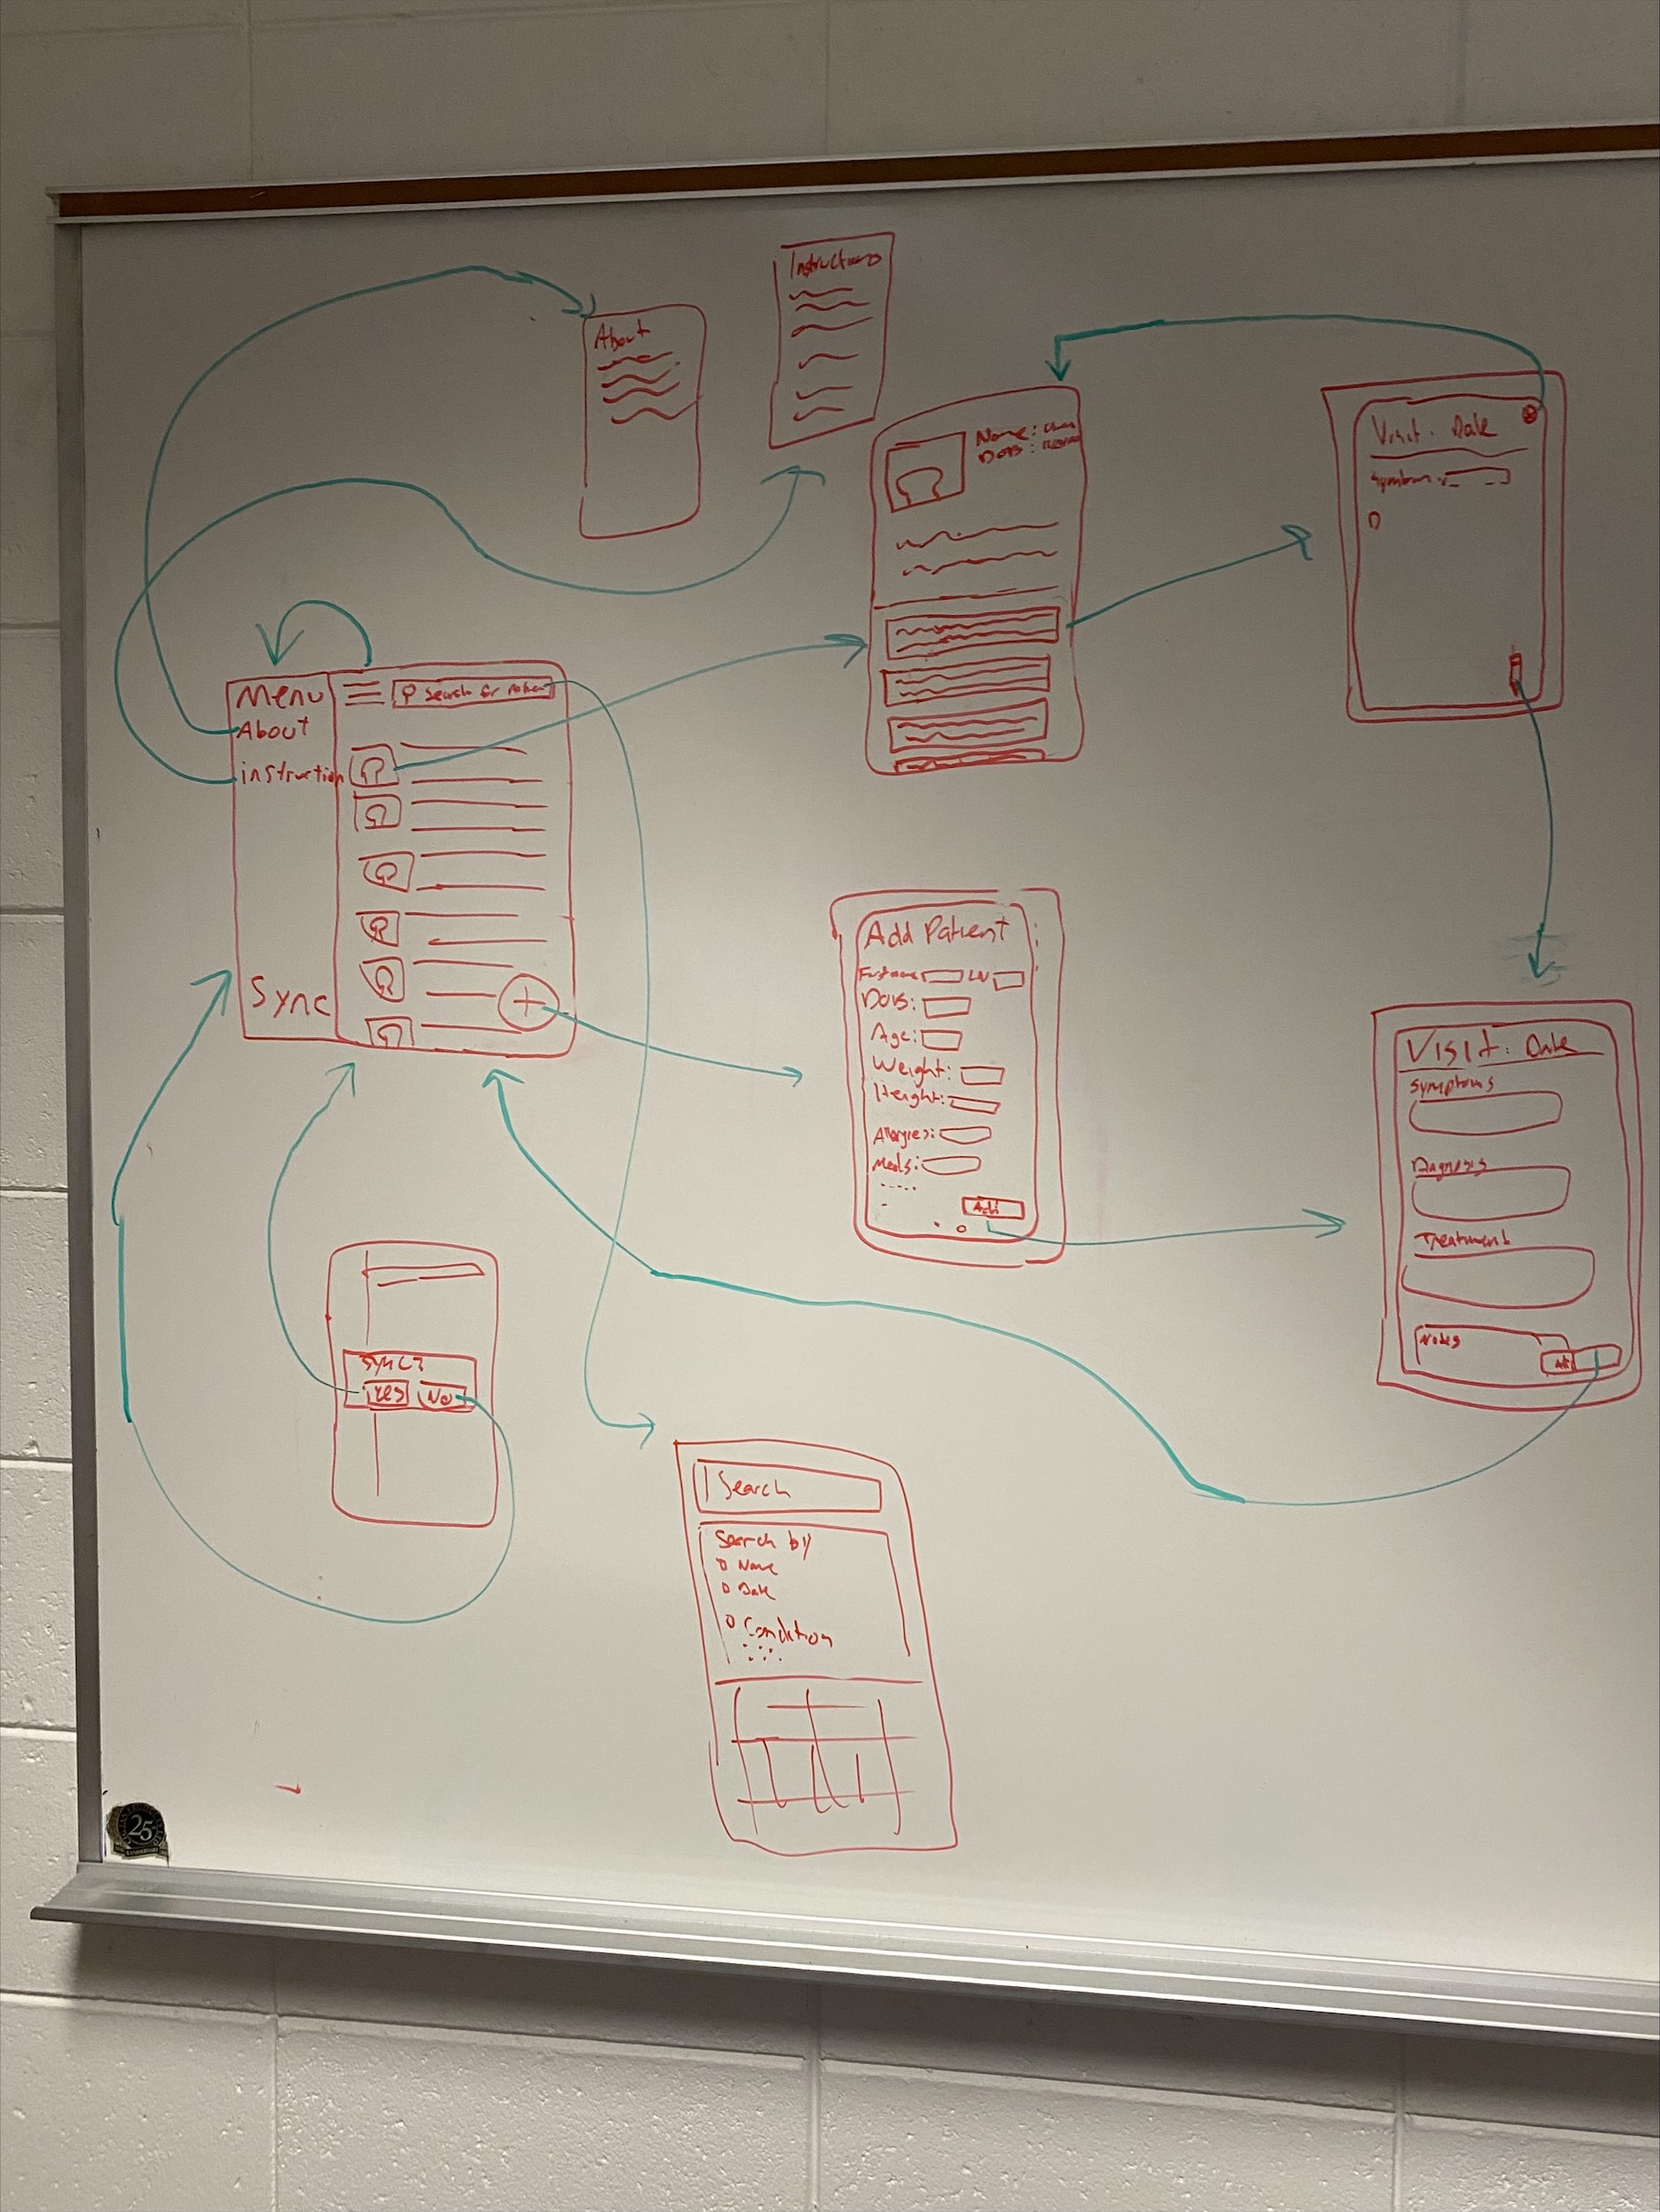 Instructions
About
Name:
DOB:
Visit: Date
Symptom:
Menu
Search for Patient
About
instruction
Sync
Add Patient
First name LN
DOB:
Age:
Weight:
Height:
Allergies:
Meds:
Add
Visit: Date
Symptoms
Diagnosis
Treatment
Notes
Add
Sync?
Yes No
Search
Search by
Name
Date
Condition
25
ANNIVERSARY